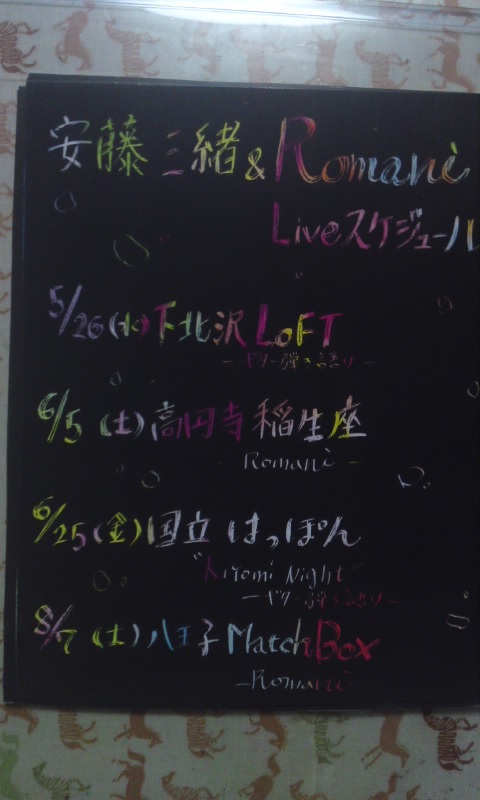 安藤三緒&Romani
Liveスケジュール
5/26(水)下北沢LOFT
－ギター弾き語り－
6/5(土)高円寺稲生座
- Romani -
6/25(金)国立はっぽん
"Kiyomi Night"
－ギター弾き語り－
8/7(土)八王子MatchBox
-Romani-